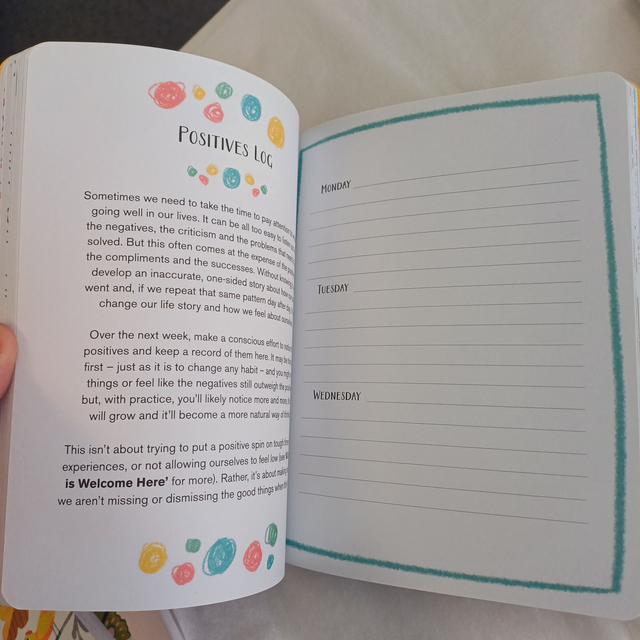 POSITIVES LOG
Sometimes we need to take the time to pay
going well in our lives. It can be all too easy to
the negatives, the criticism and the problems that
solved. But this often comes at the expense of the
the compliments and the successes. Without
develop an inaccurate, one-sided story about how
went and, if we repeat that same pattern day after
change our life story and how we feel about
Over the next week, make a conscious effort to
positives and keep a record of them here. It may
first – just as it is to change any habit – and you
things or feel like the negatives still outweigh the
but, with practice, you'll likely notice more and
will grow and it'll become a more natural way of
This isn't about trying to put a positive spin on tough
experiences, or not allowing ourselves to feel low
is Welcome Here' for more). Rather, it's about
we aren't missing or dismissing the good things when
MONDAY
TUESDAY
WEDNESDAY